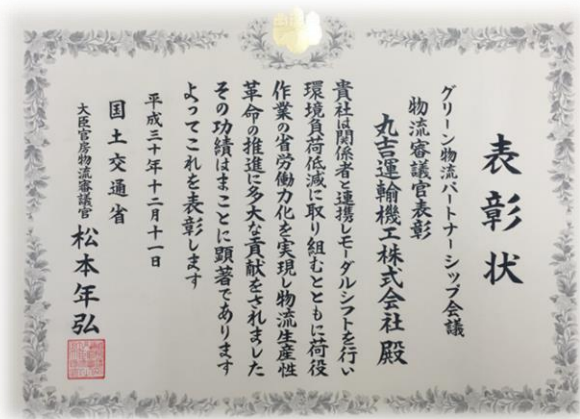 表彰状
グリーン物流パートナーシップ会議
物流審議官表彰
丸吉運輸機工株式会社 殿
貴社は関係者と連携しモーダルシフトを行い
環境負荷低減に取り組むとともに荷役
作業の省労働力化を実現し物流生産性
革命の推進に多大な貢献をされました
その功績はまことに顕著であります
よってこれを表彰します
平成三十年十二月十一日
国土交通省
大臣官房物流審議官 松本年弘